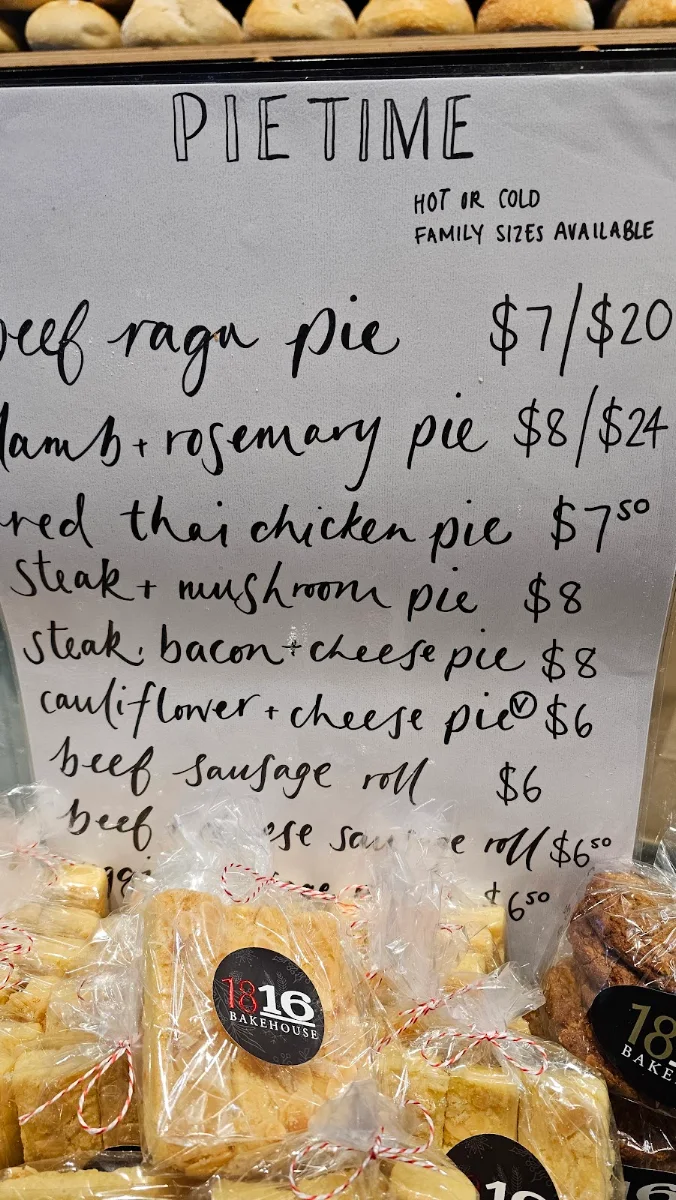 PIE TIME
HOT OR COLD
FAMILY SIZES AVAILABLE
beef ragu pie $7/$20
lamb + rosemary pie $8/$24
red thai chicken pie $7.50
steak + mushroom pie $8
steak, bacon + cheese pie $8
cauliflower + cheese pie V $6
beef sausage roll $6
beef sausage roll $6.50
$6.50
1816
BAKEHOUSE